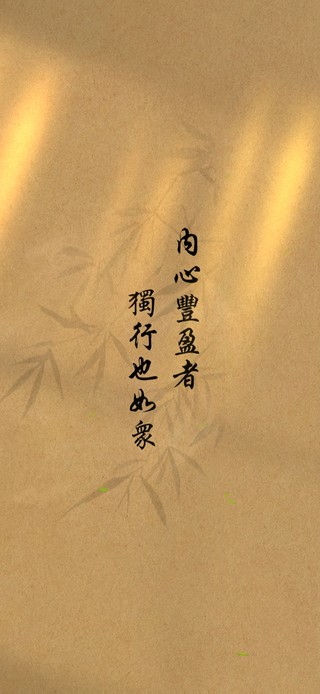 內心豐盈者
獨行也如衆